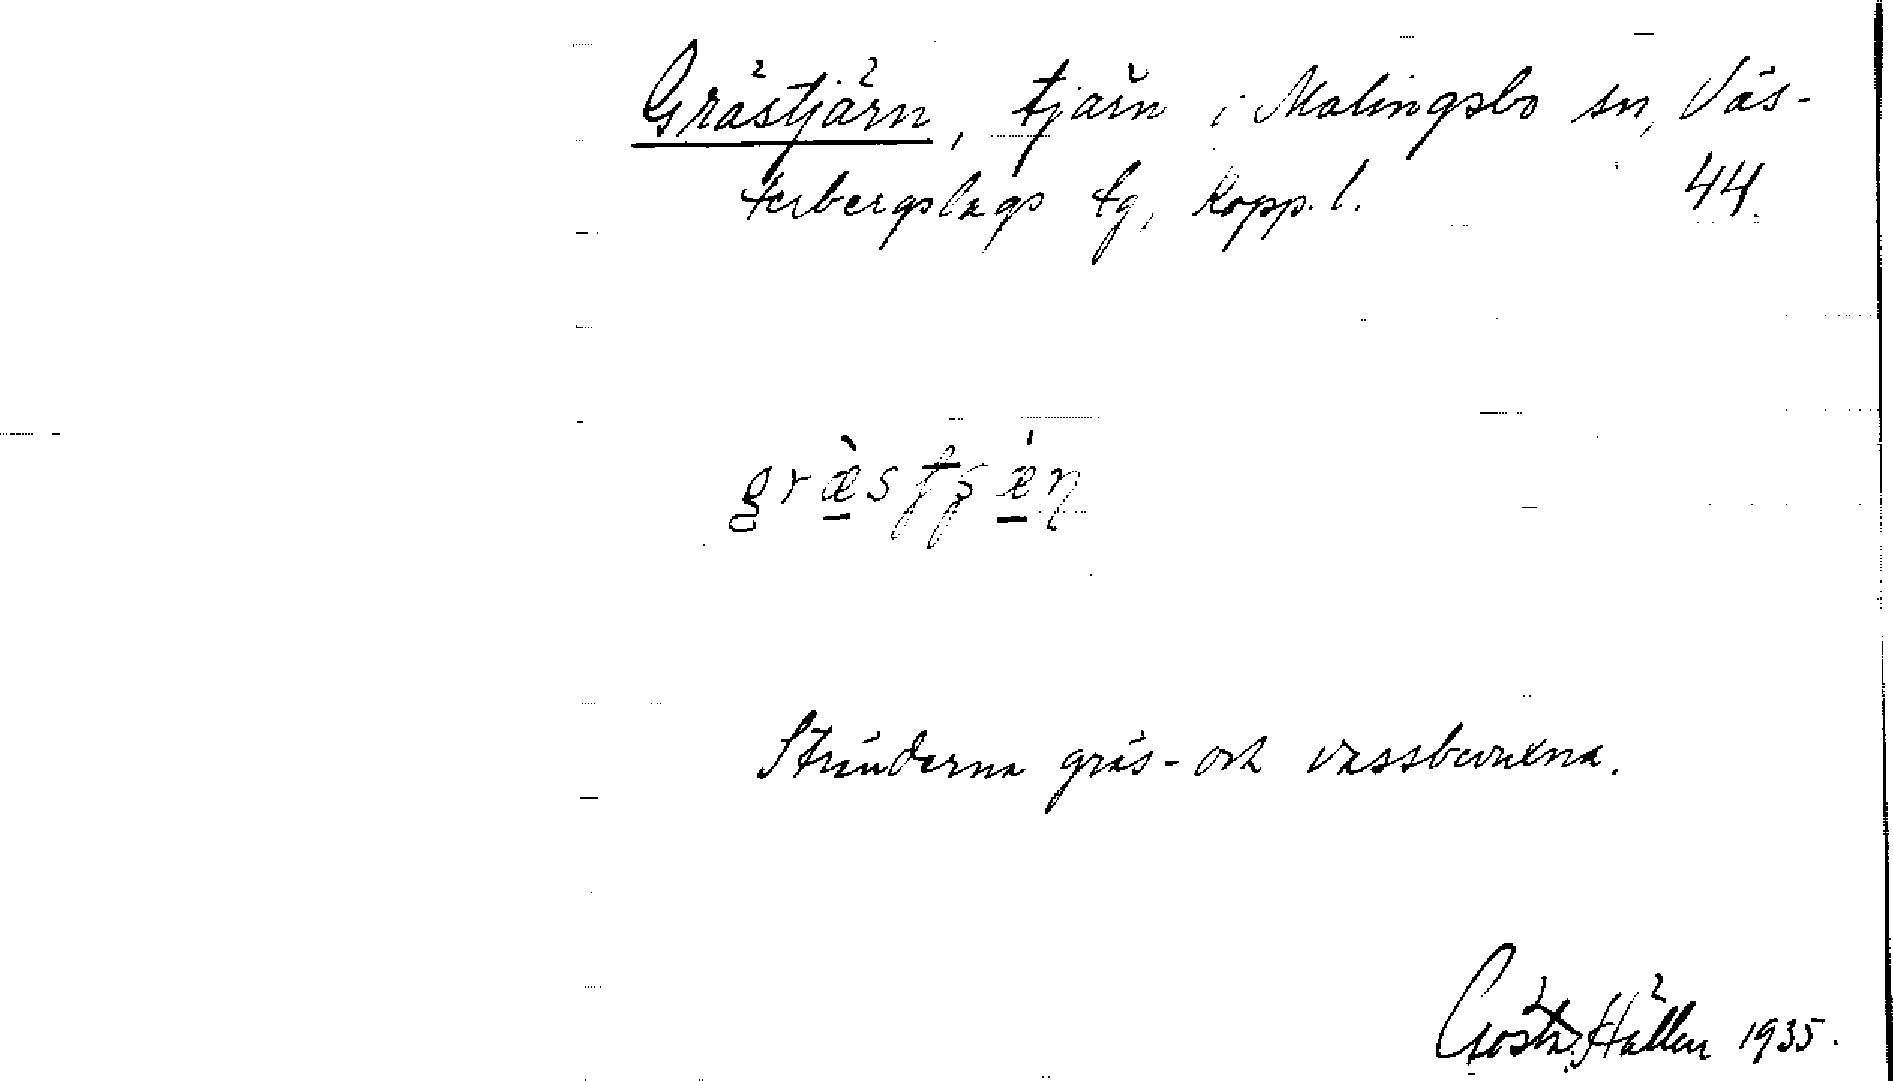 Grästjärn, tjärn i Malingsbo sn, Väs-
terbergslags tg, Kopp. l. 44.
Stränderna gräs- och vassbevuxna.
Gösta Hållen 1935.